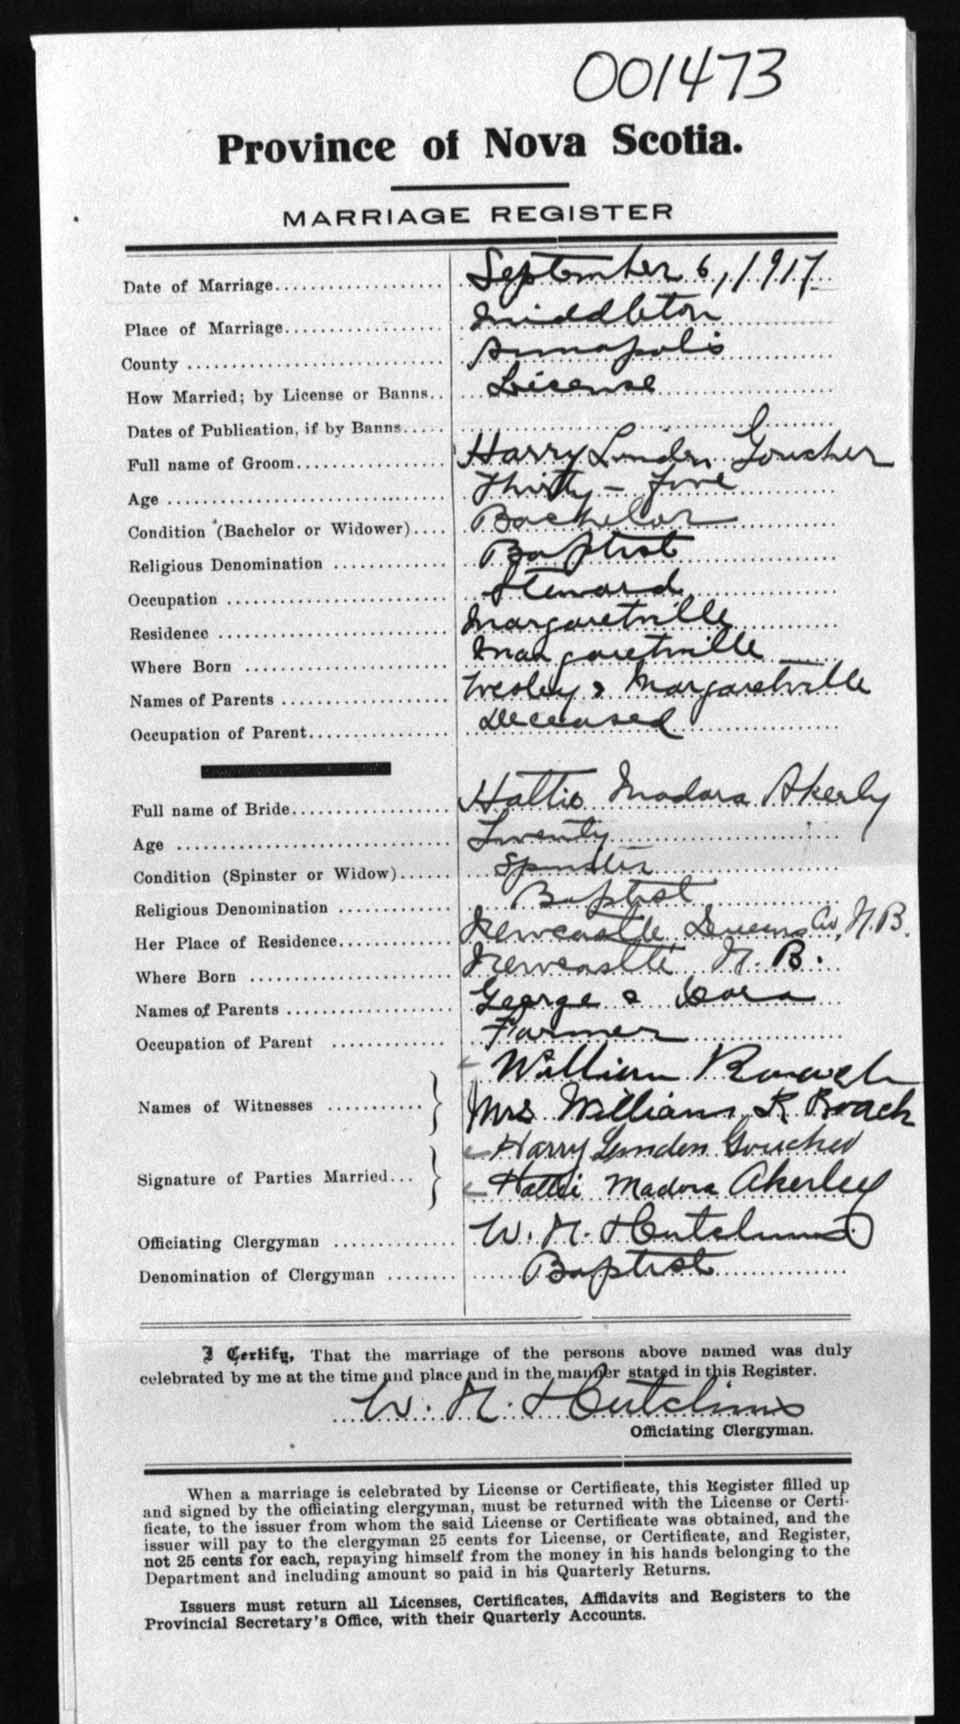 001473
Province of Nova Scotia.
MARRIAGE REGISTER
Date of Marriage September 6, 1917
Place of Marriage Middleton
County Annapolis
How Married; by License or Banns License
Dates of Publication, if by Banns
Full name of Groom Harry Linden Goucher
Age Thirty-five
Condition (Bachelor or Widower) Bachelor
Religious Denomination Baptist
Occupation Steward
Residence Margaretville
Where Born Margaretville
Names of Parents Wesley & Margaretville
Occupation of Parent Deceased
Full name of Bride Hattie Madora Akerly
Age Twenty
Condition (Spinster or Widow) Spinster
Religious Denomination Baptist
Her Place of Residence Newcastle Queens Co, N.B.
Where Born Newcastle N. B.
Names of Parents George & Dora
Occupation of Parent Farmer
William Roach
Names of Witnesses Mrs William R Roach
Harry Lindon Goucher
Signature of Parties Married Hattie Madora Akerley
Officiating Clergyman W. N. Hutchins
Denomination of Clergyman Baptist
I Certify, That the marriage of the persons above named was duly
celebrated by me at the time and place and in the manner stated in this Register.
W. N. Hutchins
Officiating Clergyman.
When a marriage is celebrated by License or Certificate, this Register filled up
and signed by the officiating clergyman, must be returned with the License or Certi-
ficate, to the issuer from whom the said License or Certificate was obtained, and the
issuer will pay to the clergyman 25 cents for License, or Certificate, and Register,
not 25 cents for each, repaying himself from the money in his hands belonging to the
Department and including amount so paid in his Quarterly Returns.
Issuers must return all Licenses, Certificates, Affidavits and Registers to the
Provincial Secretary's Office, with their Quarterly Accounts.